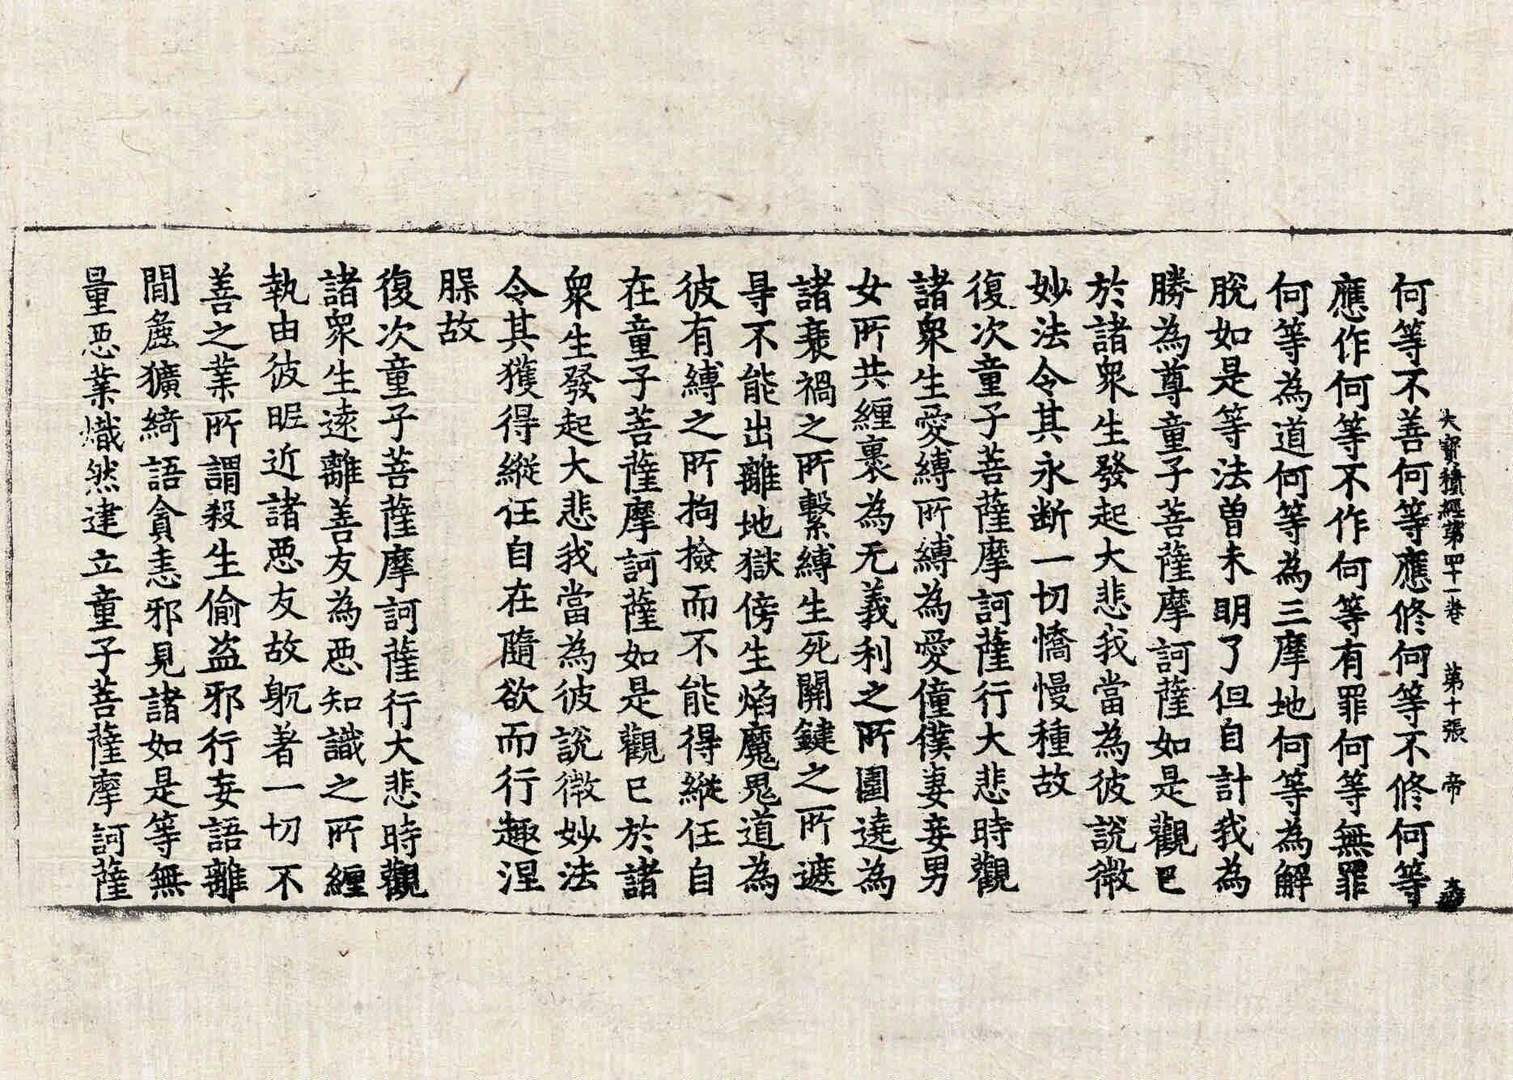 大寶積經第四十一卷　第十張　帝
何等不善何等應修何等不修何等
應作何等不作何等有罪何等無罪
何等為道何等為三摩地何等為解
脫如是等法曾未明了但自計我為
勝為尊童子菩薩摩訶薩如是觀已
於諸眾生發起大悲我當為彼說微
妙法令其永斷一切憍慢種故
復次童子菩薩摩訶薩行大悲時觀
諸眾生愛縛所縛為愛僮僕妻妾男
女所共纏裹為无義利之所圍遶為
諸衰禍之所繫縛生死關鍵之所遮
㝵不能出離地獄傍生焰魔鬼道為
彼有縛之所拘撿而不能得縱任自
在童子菩薩摩訶薩如是觀已於諸
眾生發起大悲我當為彼說微妙法
令其獲得縱任自在隨欲而行趣涅
槃故
復次童子菩薩摩訶薩行大悲時觀
諸眾生遠離善友為惡知識之所纏
執由彼昵近諸惡友故躭著一切不
善之業所謂殺生偷盜邪行妄語離
間麁獷綺語貪恚邪見諸如是等無
量惡業熾然建立童子菩薩摩訶薩